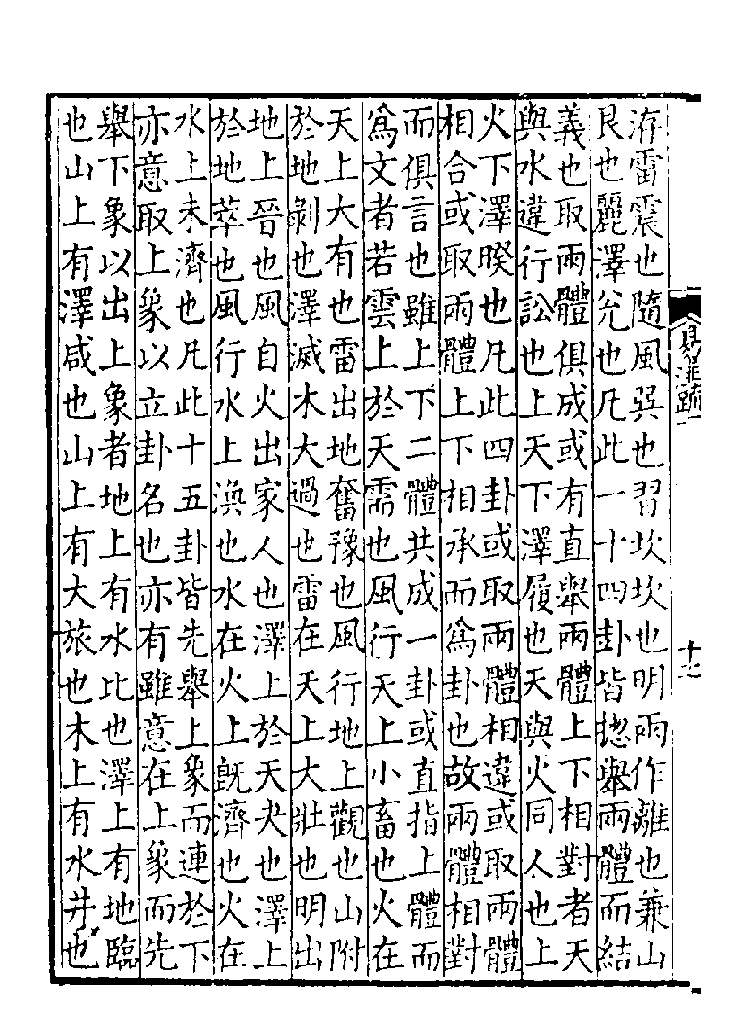 洊雷震也隨風巽也習坎坎也明兩作離也兼山
艮也麗澤兌也凡此一十四卦皆摠舉兩體而結
義也取兩體俱成或有直舉兩體上下相對者天
與水違行訟也上天下澤履也天與火同人也上
火下澤睽也凡此四卦或取兩體相違或取兩體
相合或取兩體上下相承而爲卦也故兩體相對
而俱言也雖上下二體共成一卦或直指上體而
爲文者若雲上於天需也風行天上小畜也火在
天上大有也雷出地奮豫也風行地上觀也山附
於地剝也澤滅木大過也雷在天上大壯也明出
地上晉也風自火出家人也澤上於天夬也澤上
於地萃也風行水上渙也水在火上旣濟也火在
水上未濟也凡此十五卦皆先舉上象而連於下
亦意取上象以立卦名也亦有雖意在上象而先
舉下象以出上象者地上有水比也澤上有地臨
也山上有澤咸也山上有大旅也木上有水井也